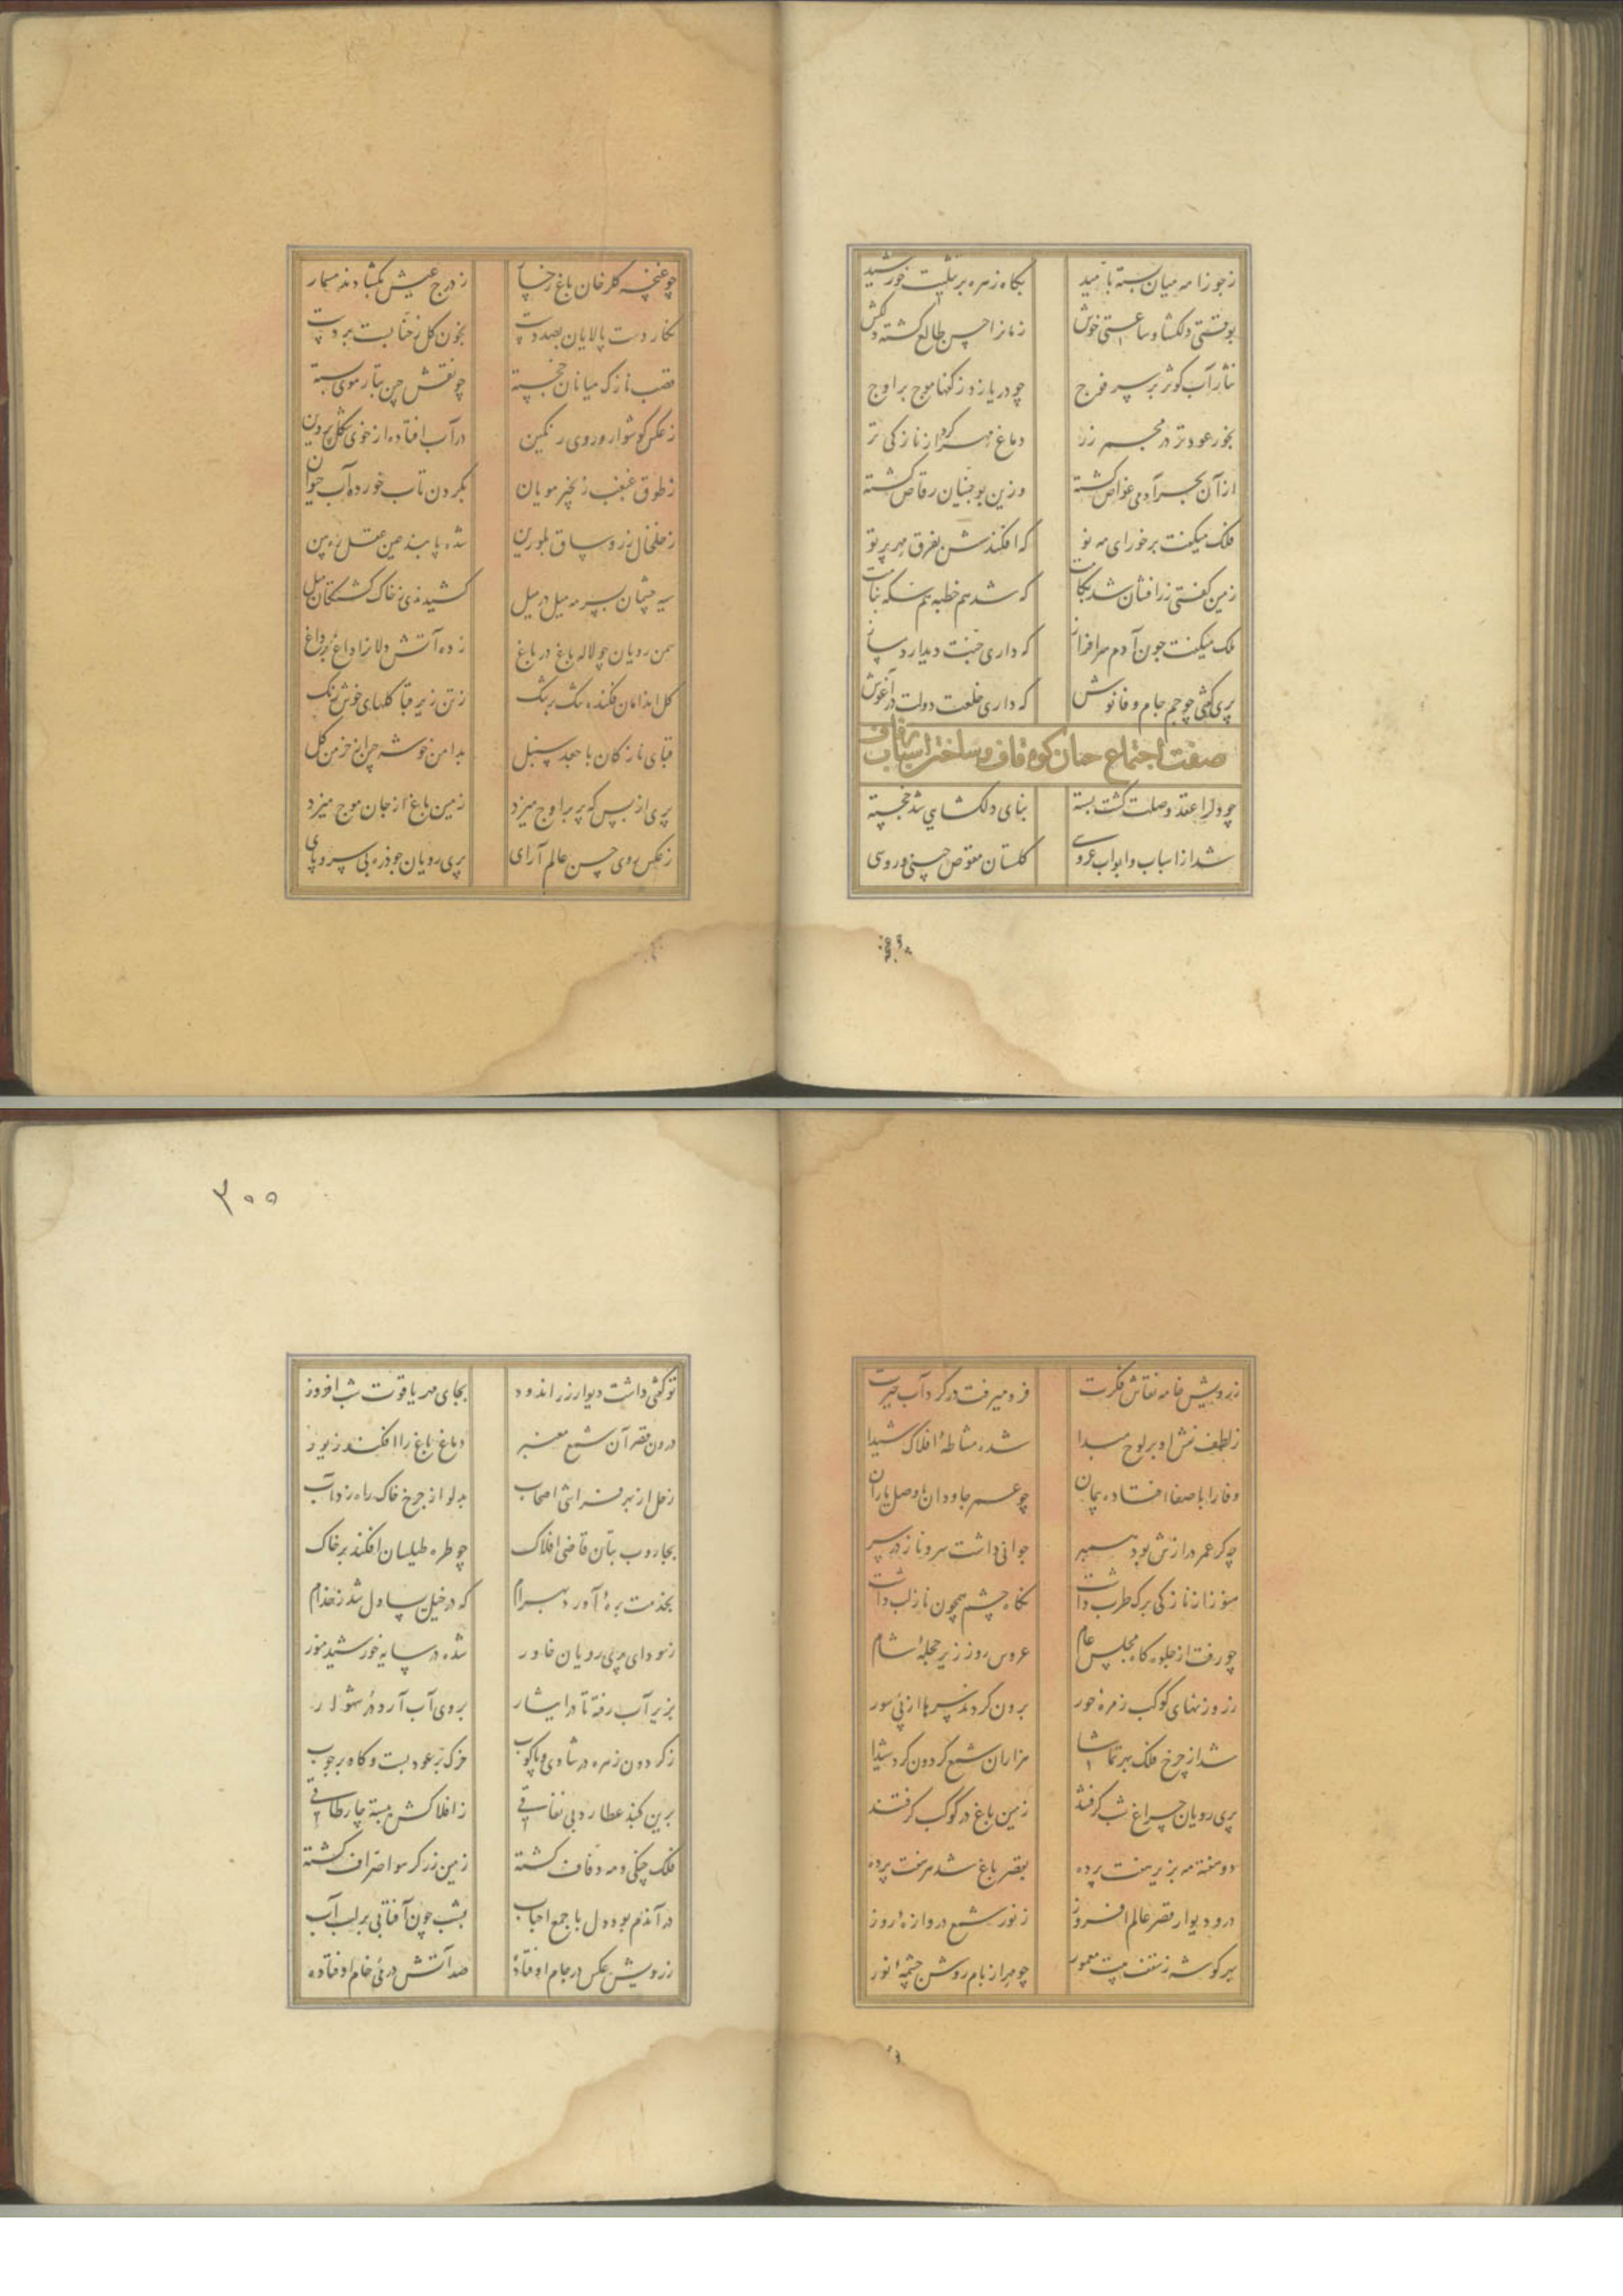 زجوزا مه میان بسته بامید
بگاه زهره بر تثلیث خورشید
بوقتی دلکشا و ساعتی خوش
زمانرا حسن طالع کشته دلکش
نثار آب کوثر بر سر فوج
چو دریا زد ز کفها موج بر اوج
بخور عود تر در مجمر زر
دماغ مهر کرد از نازکی تر
از آن بحر آدمی غواص کشته
وزین بو جنیان رقاص کشته
فلک میکفت برخور ای مه نو
که افکندش بفرق مهر پرتو
زمین کفتی زرافشان شد بکامت
که شد هم خطبه هم سکه بنامت
ملک میکفت جون آدم سرافراز
که داری جنت دیدار دمساز
پری کفتی چو جم جام وفا نوش
که داری خلعت دولت در آغوش
صفت اجتماع جنیان کوه قاف و ساختن اسباب زفاف
چو دلرا عقد وصلت کشت بسته
بنای دلکشای شد خجسته
شد از اسباب و ابواب عروسی
کلستان معوض چینی و روسی
چو غنچه کلرخان باغ رخسار
ز درج عیش بکشادند مسمار
نکار دست پالایان بصد دست
بخون کل ز حنا بست بر دست
قصب نازک میانان خجسته
چو نقش چین بتار موی بسته
ز عکس کوشوار و روی رنکین
در آب افتاده از خوی شکل پروین
ز طوق غبغب زنجیر مویان
بکردن تاب خورده آب حیوان
ز خلخال زر و ساق بلورین
شده پا بند عین عقل ره بین
سیه چشمان بسرمه میل در میل
کشیدندی ز خاک کشتکان میل
سمن رویان چو لاله باغ در باغ
زده آتش دلانرا داغ بر داغ
کل اندامان فکنده تنک بر تنک
ز تن زیر قبا کلهای خوش رنک
قبای نازکان با جعد سنبل
بدامن خوشه چین از خرمن کل
پری از بس که پر بر اوج میزد
زمین باغ از جان موج میزد
ز عکس روی حسن عالم آرای
پری رویان جو ذره بی سر و پای
ز رویش خامه نقاش فکرت
فرو میرفت در کرداب حیرت
ز لطف نقش او بر لوح مبدا
شده مشاطهٔ افلاک شیدا
وفا را با صفا افتاده پیمان
چو عمر جاودان با وصل یاران
چه کر عمر درازش بود همسر
جوانی داشت سرو ناز در سر
هنوز از نازکی برک طرب داشت
نکاه چشم همچون ناز لب داشت
چو رفت از جلوه کاه مجلس عام
عروس روز زیر حجلهٔ شام
ز روزنهای کوکب زمره حور
برون کردند سرها از پی سور
شد از چرخ فلک بهر تماشا
هزاران شمع کردون کرد شیدا
پری رویان چراغ شب کرفتند
زمین باغ در کوکب کرفتند
دو هفته مه بزیر هفت پرده
بقصر باغ شد هر هفت پرده
در و دیوار قصر عالم افروز
ز نور شمع دروازهٔ روز
بهر کوشه ز سقف بیت معمور
چو مهر از بام روشن چشمهٔ نور
۳۰۰
تو کفتی داشت دیوار زر اندود
بجای مهر یاقوت شب افروز
درون قصر آن شمع معنبر
دماغ باغ را افکند زیور
زحل از بهر فراشی اصحاب
بدلو از جرخ خاک راه زد آب
بجاروب بتان قاضی افلاک
چو طره طیلسان افکند بر خاک
بخدمت بره آورد بهرام
که در خیل بساول شد ز خدام
ز سودای پری رویان خاور
شده در سایه خورشید منور
بزیر آب رفته تا در ایثار
بروی آب آرد در شهوار
ز کردون زهره در شادی و پاکوب
خرک بر عود بست و کاه بر جوب
برین کنبذ عطارد بی نفاقی
ز افلاکش بسته چار طاقی
فلک چنکی و مه دفاف کشته
زمین زرکر هوا صراف کشته
در آندم بود دل با جمع احباب
بشب چون آفتابی بر لب آب
ز رویش عکس در جام اوفتاده
صد آتش در می خام اوفتاده